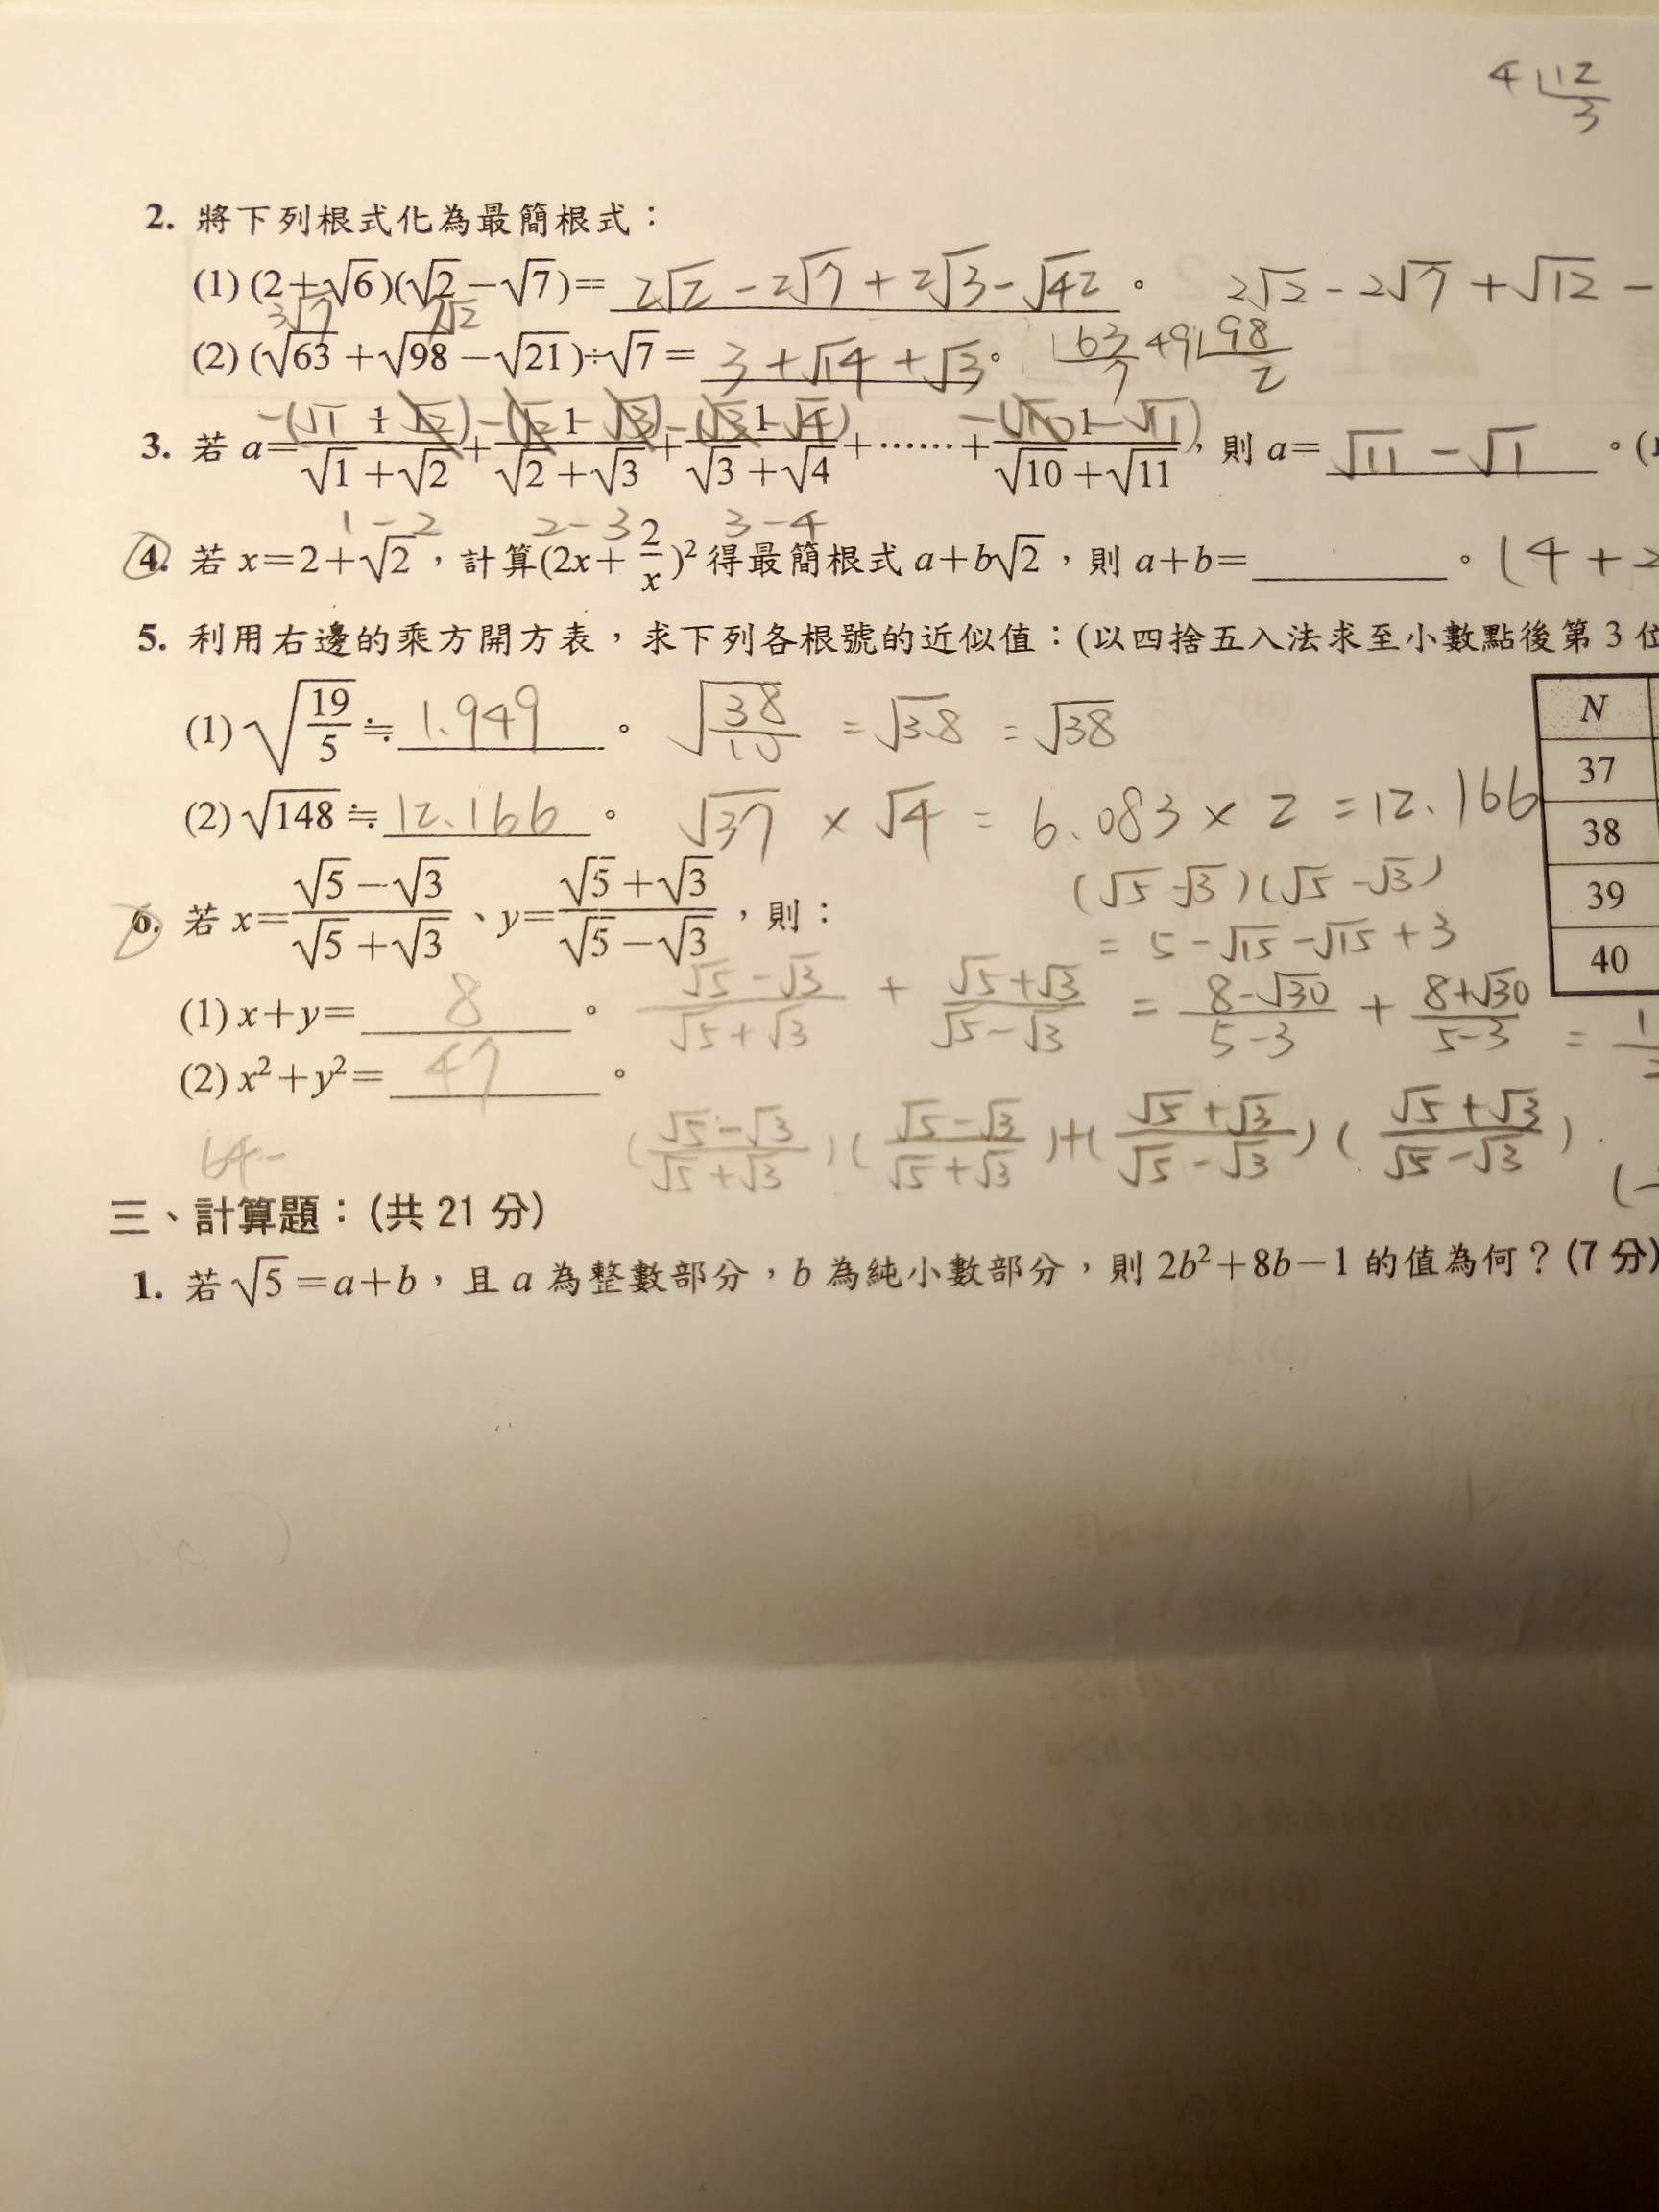 4 12
3
2. 將下列根式化為最簡根式：
(1) (2+√6)(√2−√7)= 2√2 − 2√7 + 2√3 − √42 。 2√2 − 2√7 + √12 −
3√7 7√2
(2) (√63+√98−√21)÷√7= 3 + √14 + √3 。 63 7 49 98 2
−(√1 + √2) −(√2 − √3) −(√3 − √4) −(√10 − √11)
3. 若 a=1/(√1+√2)+1/(√2+√3)+1/(√3+√4)+⋯⋯+1/(√10+√11)，則 a= √11 − √1 。(1
1−2 2−3 3−4
4. 若 x=2+√2，計算(2x+2/x)²得最簡根式 a+b√2，則 a+b=________。 (4+2
5. 利用右邊的乘方開方表，求下列各根號的近似值：(以四捨五入法求至小數點後第 3 位
(1) √(19/5)≒ 1.949 。 √(38/10) = √3.8 = √38
N
37
38
39
40
(2) √148≒ 12.166 。 √37 × √4 = 6.083 × 2 = 12.166
6. 若 x=(√5−√3)/(√5+√3)、y=(√5+√3)/(√5−√3)，則：
(√5−√3)(√5−√3)
= 5−√15−√15+3
(1) x+y= 8 。 (√5−√3)/(√5+√3) + (√5+√3)/(√5−√3) = (8−√30)/(5−3) + (8+√30)/(5−3) =
(2) x²+y²= 47 。
((√5−√3)/(√5+√3))((√5−√3)/(√5+√3))+((√5+√3)/(√5−√3))((√5+√3)/(√5−√3))
64−
三、計算題：(共 21 分)
1. 若√5=a+b，且 a 為整數部分，b 為純小數部分，則 2b²+8b−1 的值為何？(7 分)